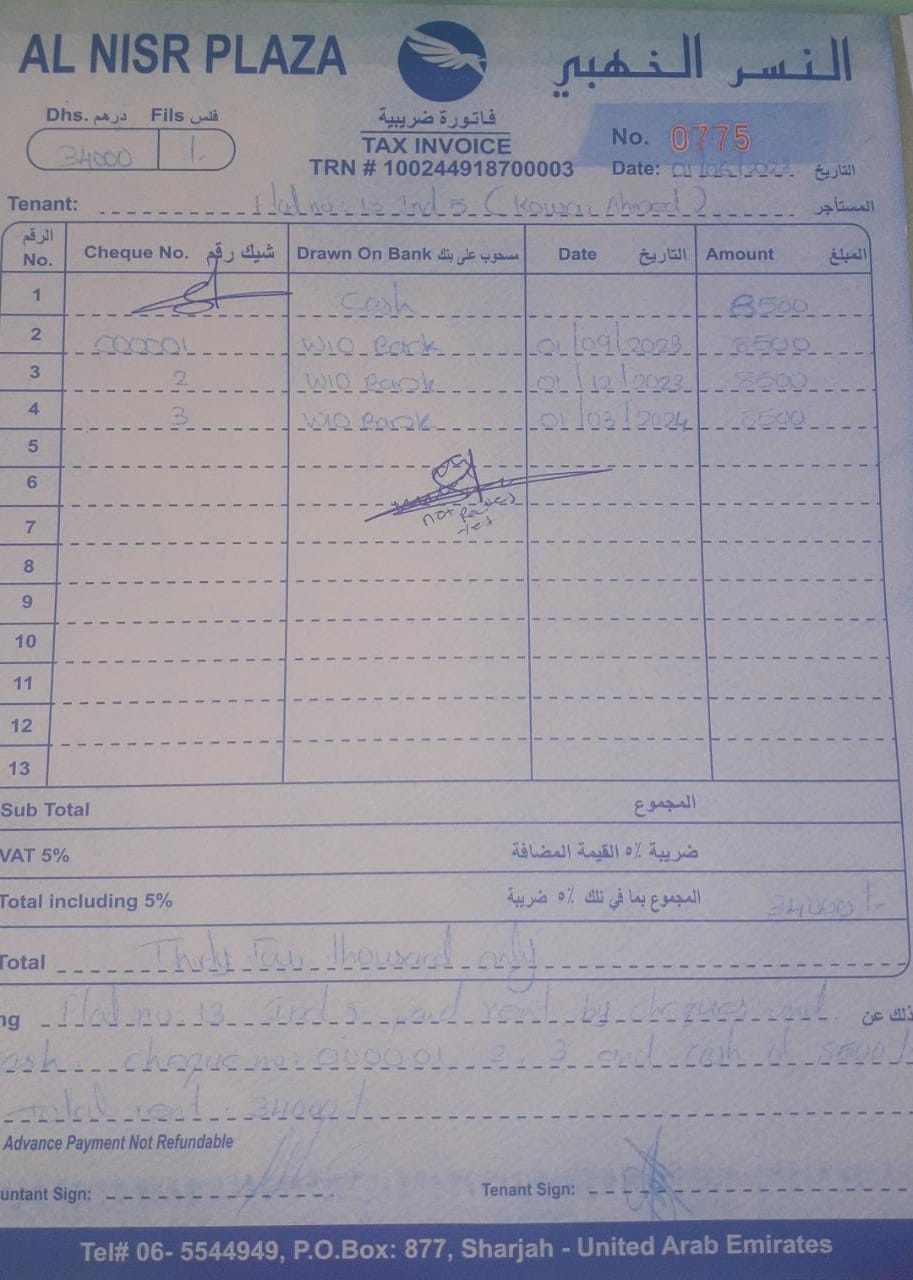 AL NISR PLAZA
النسر الذهبي
Dhs. درهم Fils فلس
34000 /-
فاتورة ضريبية
TAX INVOICE
TRN # 100244918700003
No. 0775
Date: 01/06/2023 التاريخ
Tenant: Flat no. 13 Ind 5 (Kowsar Ahmed) المستأجر
الرقم No. Cheque No. شيك رقم Drawn On Bank مسحوب على بنك Date التاريخ Amount المبلغ
1 Cash 8500
2 000001 WIO Bank 01/09/2023 8500
3 2 WIO Bank 01/12/2023 8500
4 3 WIO Bank 01/03/2024 8500
5
6
not
7
8
9
10
11
12
13
Sub Total المجموع
VAT 5% ضريبة ٥٪ القيمة المضافة
Total including 5% المجموع بما في ذلك ٥٪ ضريبة 34000/-
Total Thirty four thousand only
ng Flat no. 13 Ind 5 paid rent by cheques and ذلك عن
ash. cheque no: 000001, 2, 3 and cash of 8500/
Total rent. 34000/
Advance Payment Not Refundable
untant Sign: Tenant Sign:
Tel# 06- 5544949, P.O.Box: 877, Sharjah - United Arab Emirates